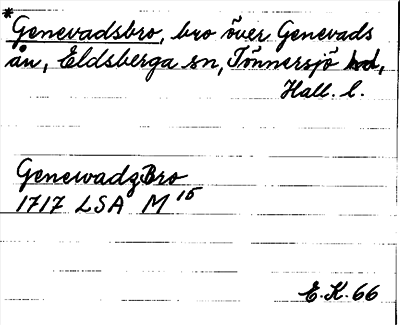 *Genevadsbro, bro över Genevads
ån, Eldsberga sn, Tönnersjö hd,
Hall. l.
GenewadzBro
1717 LSA M 15
E.K. 66